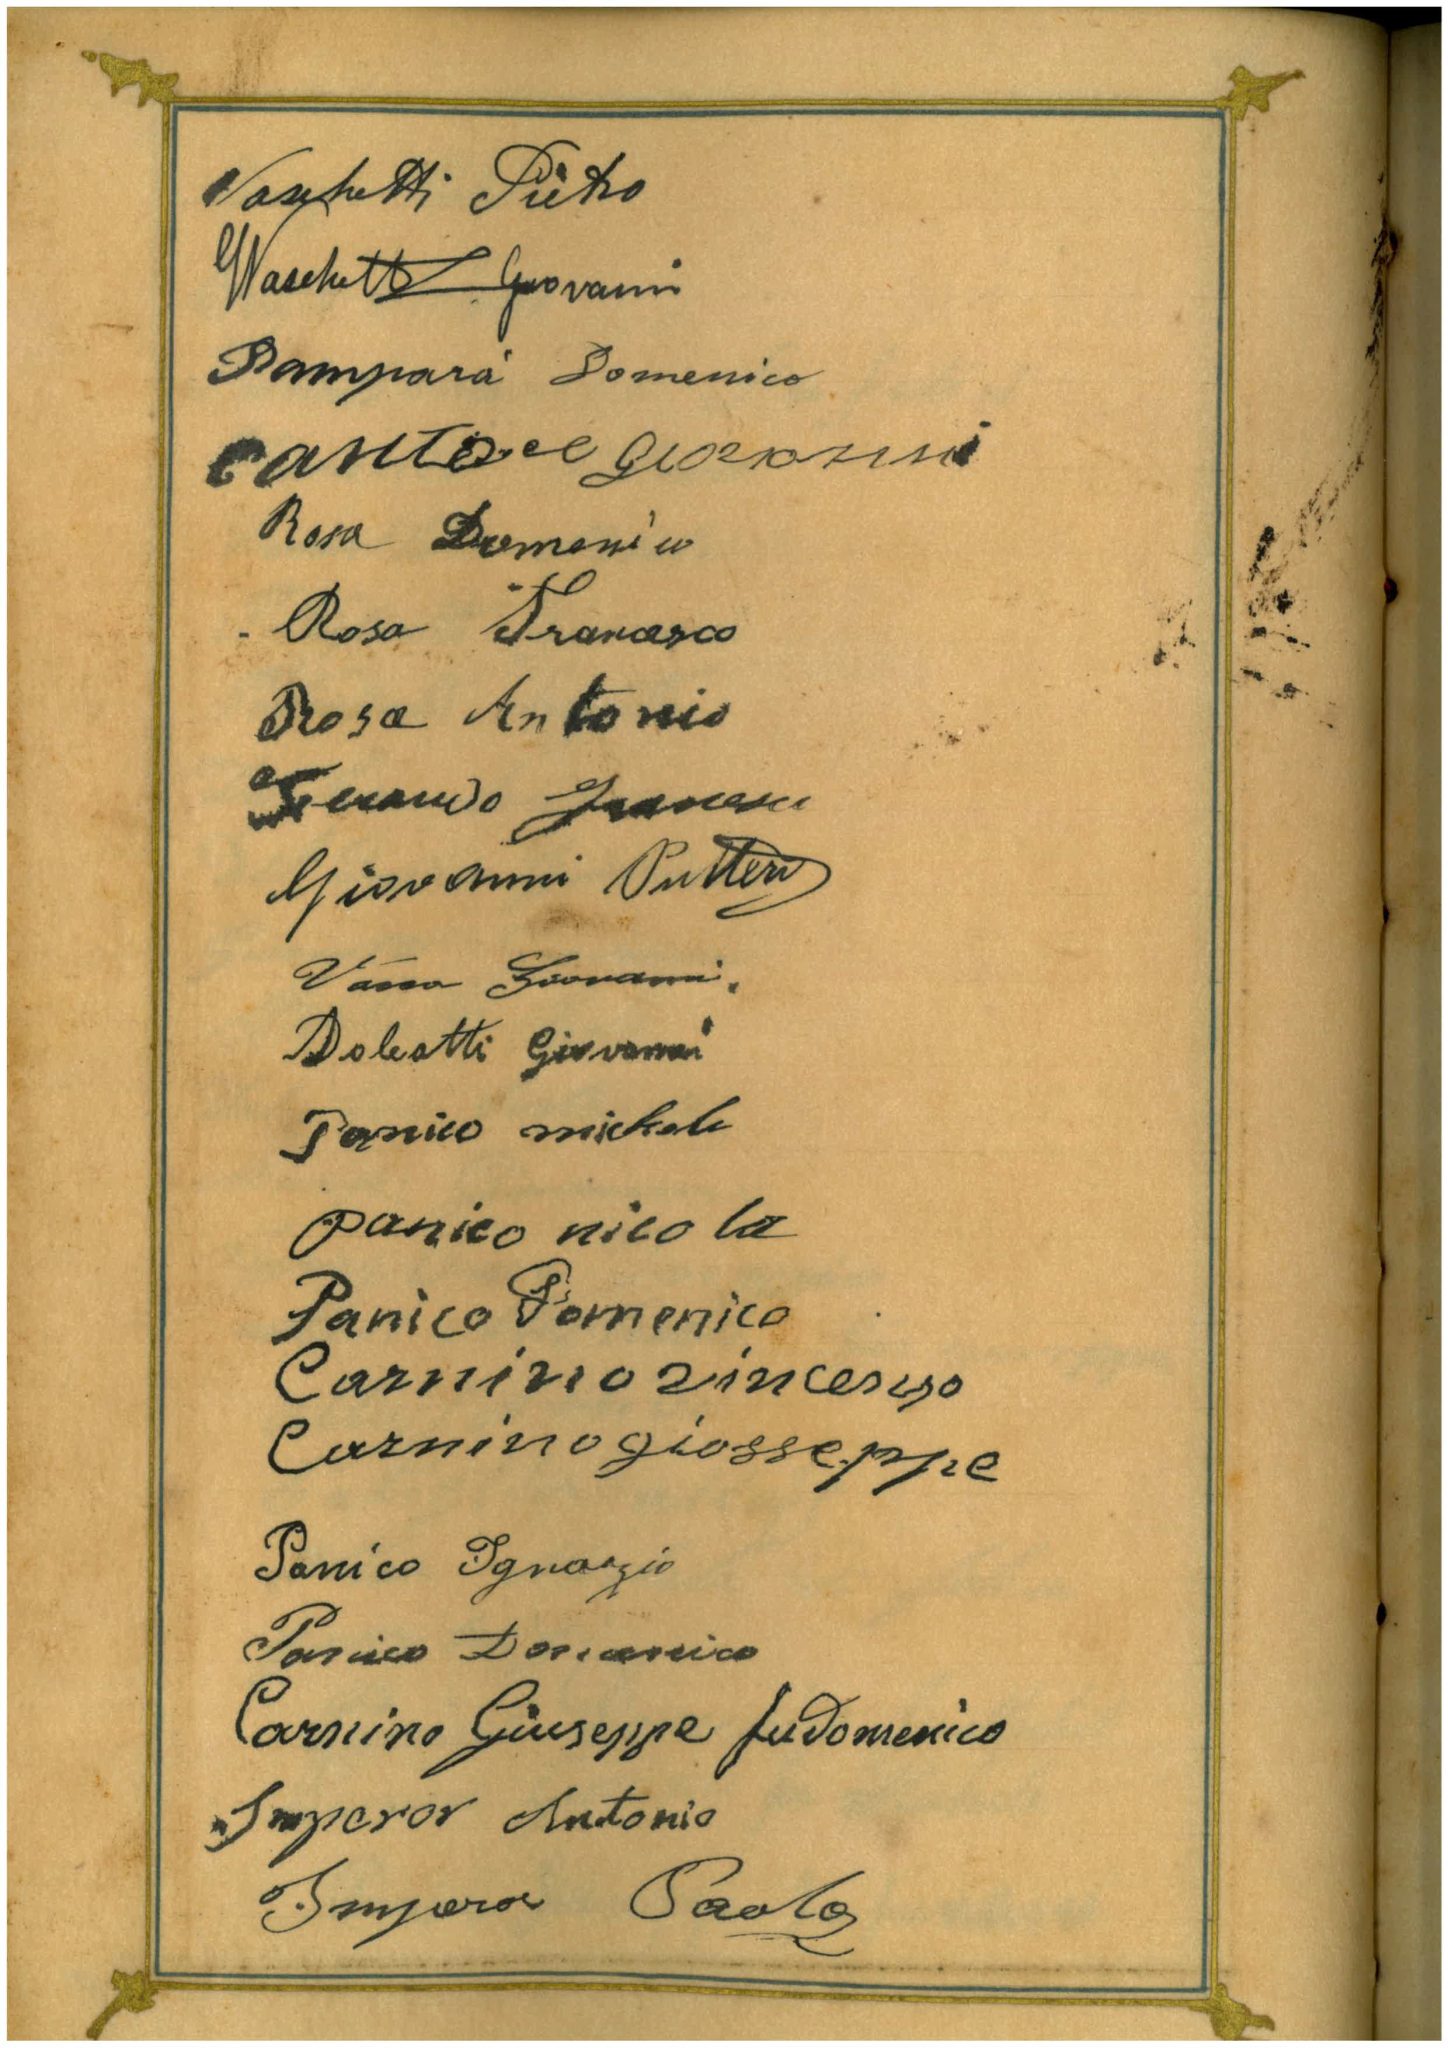 Vaschetti Pietro
Vaschetti Giovanni
Pampara Domenico
cantore Giovanni
Rosa Domenico
Rosa Francesco
Rosa Antonio
Ferando Francesco
Giovanni Putteri
Giovanni
Dolcatti Giovanni
Panico michele
panico nicola
Panico Domenico
Carnino vincenso
Carnino giosseppe
Panico Ignazio
Panico Domenico
Carnino Giuseppe fu Domenico
Imperor Antonio
Imperor Paolo